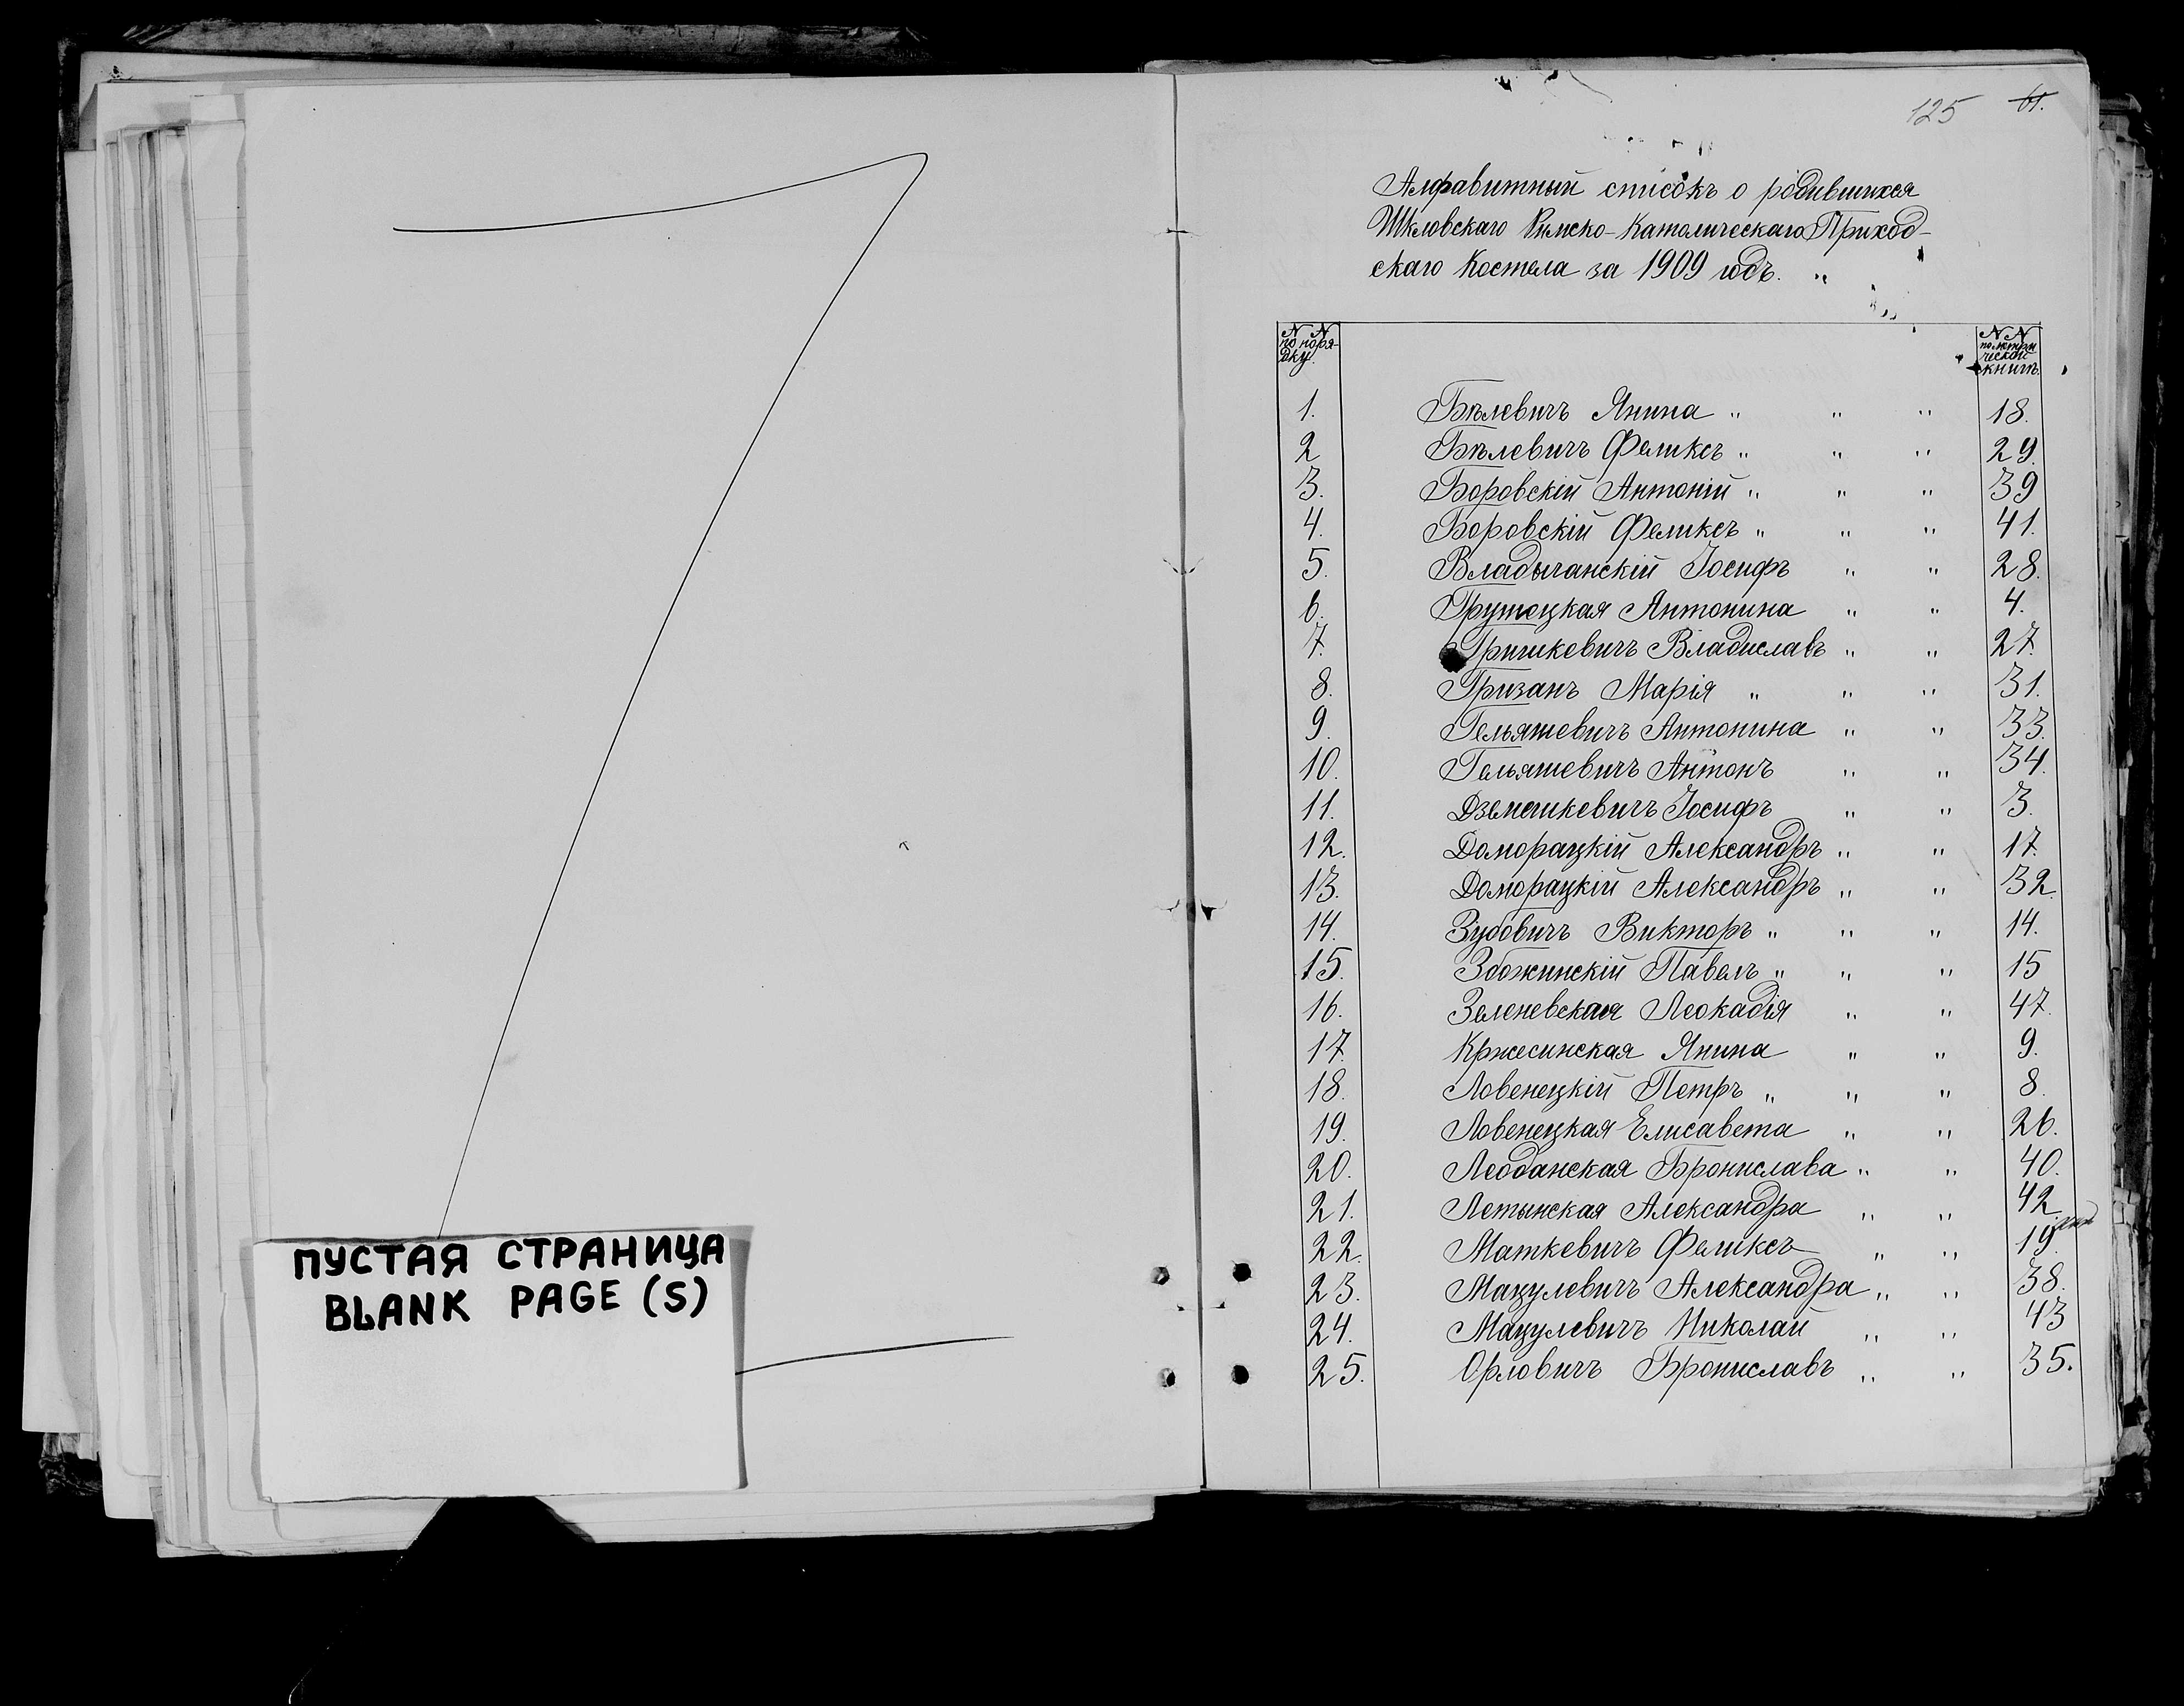 125 61.
Алфавитный списокъ о родившихся
Шкловскаго Римско-Католическаго Приход-
скаго Костела за 1909 годъ. "
N N по поря- дку.
N N по метри ческой книгѣ.
1. Бѣлевичъ Янина " " " 18.
2 Бѣлевичъ Феликсъ " " " 29.
3. Боровскій Антоній " " " 39
4. Боровскій Феликсъ " " " 41.
5. Владычанскій Іосифъ " " 28.
6. Грутецкая Антонина " " 4.
7. Гришкевичъ Владиславъ " " 27.
8. Гризанъ Марія " " " 31.
9. Гельяшевичъ Антонина " " 33.
10. Гельяшевичъ Антонъ " " 34.
11. Дземешкевичъ Іосифъ " " 3.
12. Доморацкій Александръ " " 17.
13. Доморацкій Александръ " " 32
14. Зубовичъ Викторъ " " " 14.
15. Збожинскій Павелъ " " " 15
16. Зеленевская Леокадія " " 47.
17. Кржесинская Янина " " 9.
18. Ловенецкій Петръ " " " 8.
19. Ловенецкая Елисавета " " 26.
20. Леоданская Брониславa " " 40.
21. Летынская Александра " " 42
22. Маткевичъ Феликсъ " " 19
23. Мацулевичъ Александра " " 38.
24. Мацулевичъ Николай " " 43
25. Орловичъ Брониславъ " " 35.
ПУСТАЯ СТРАНИЦА
BLANK PAGE (S)